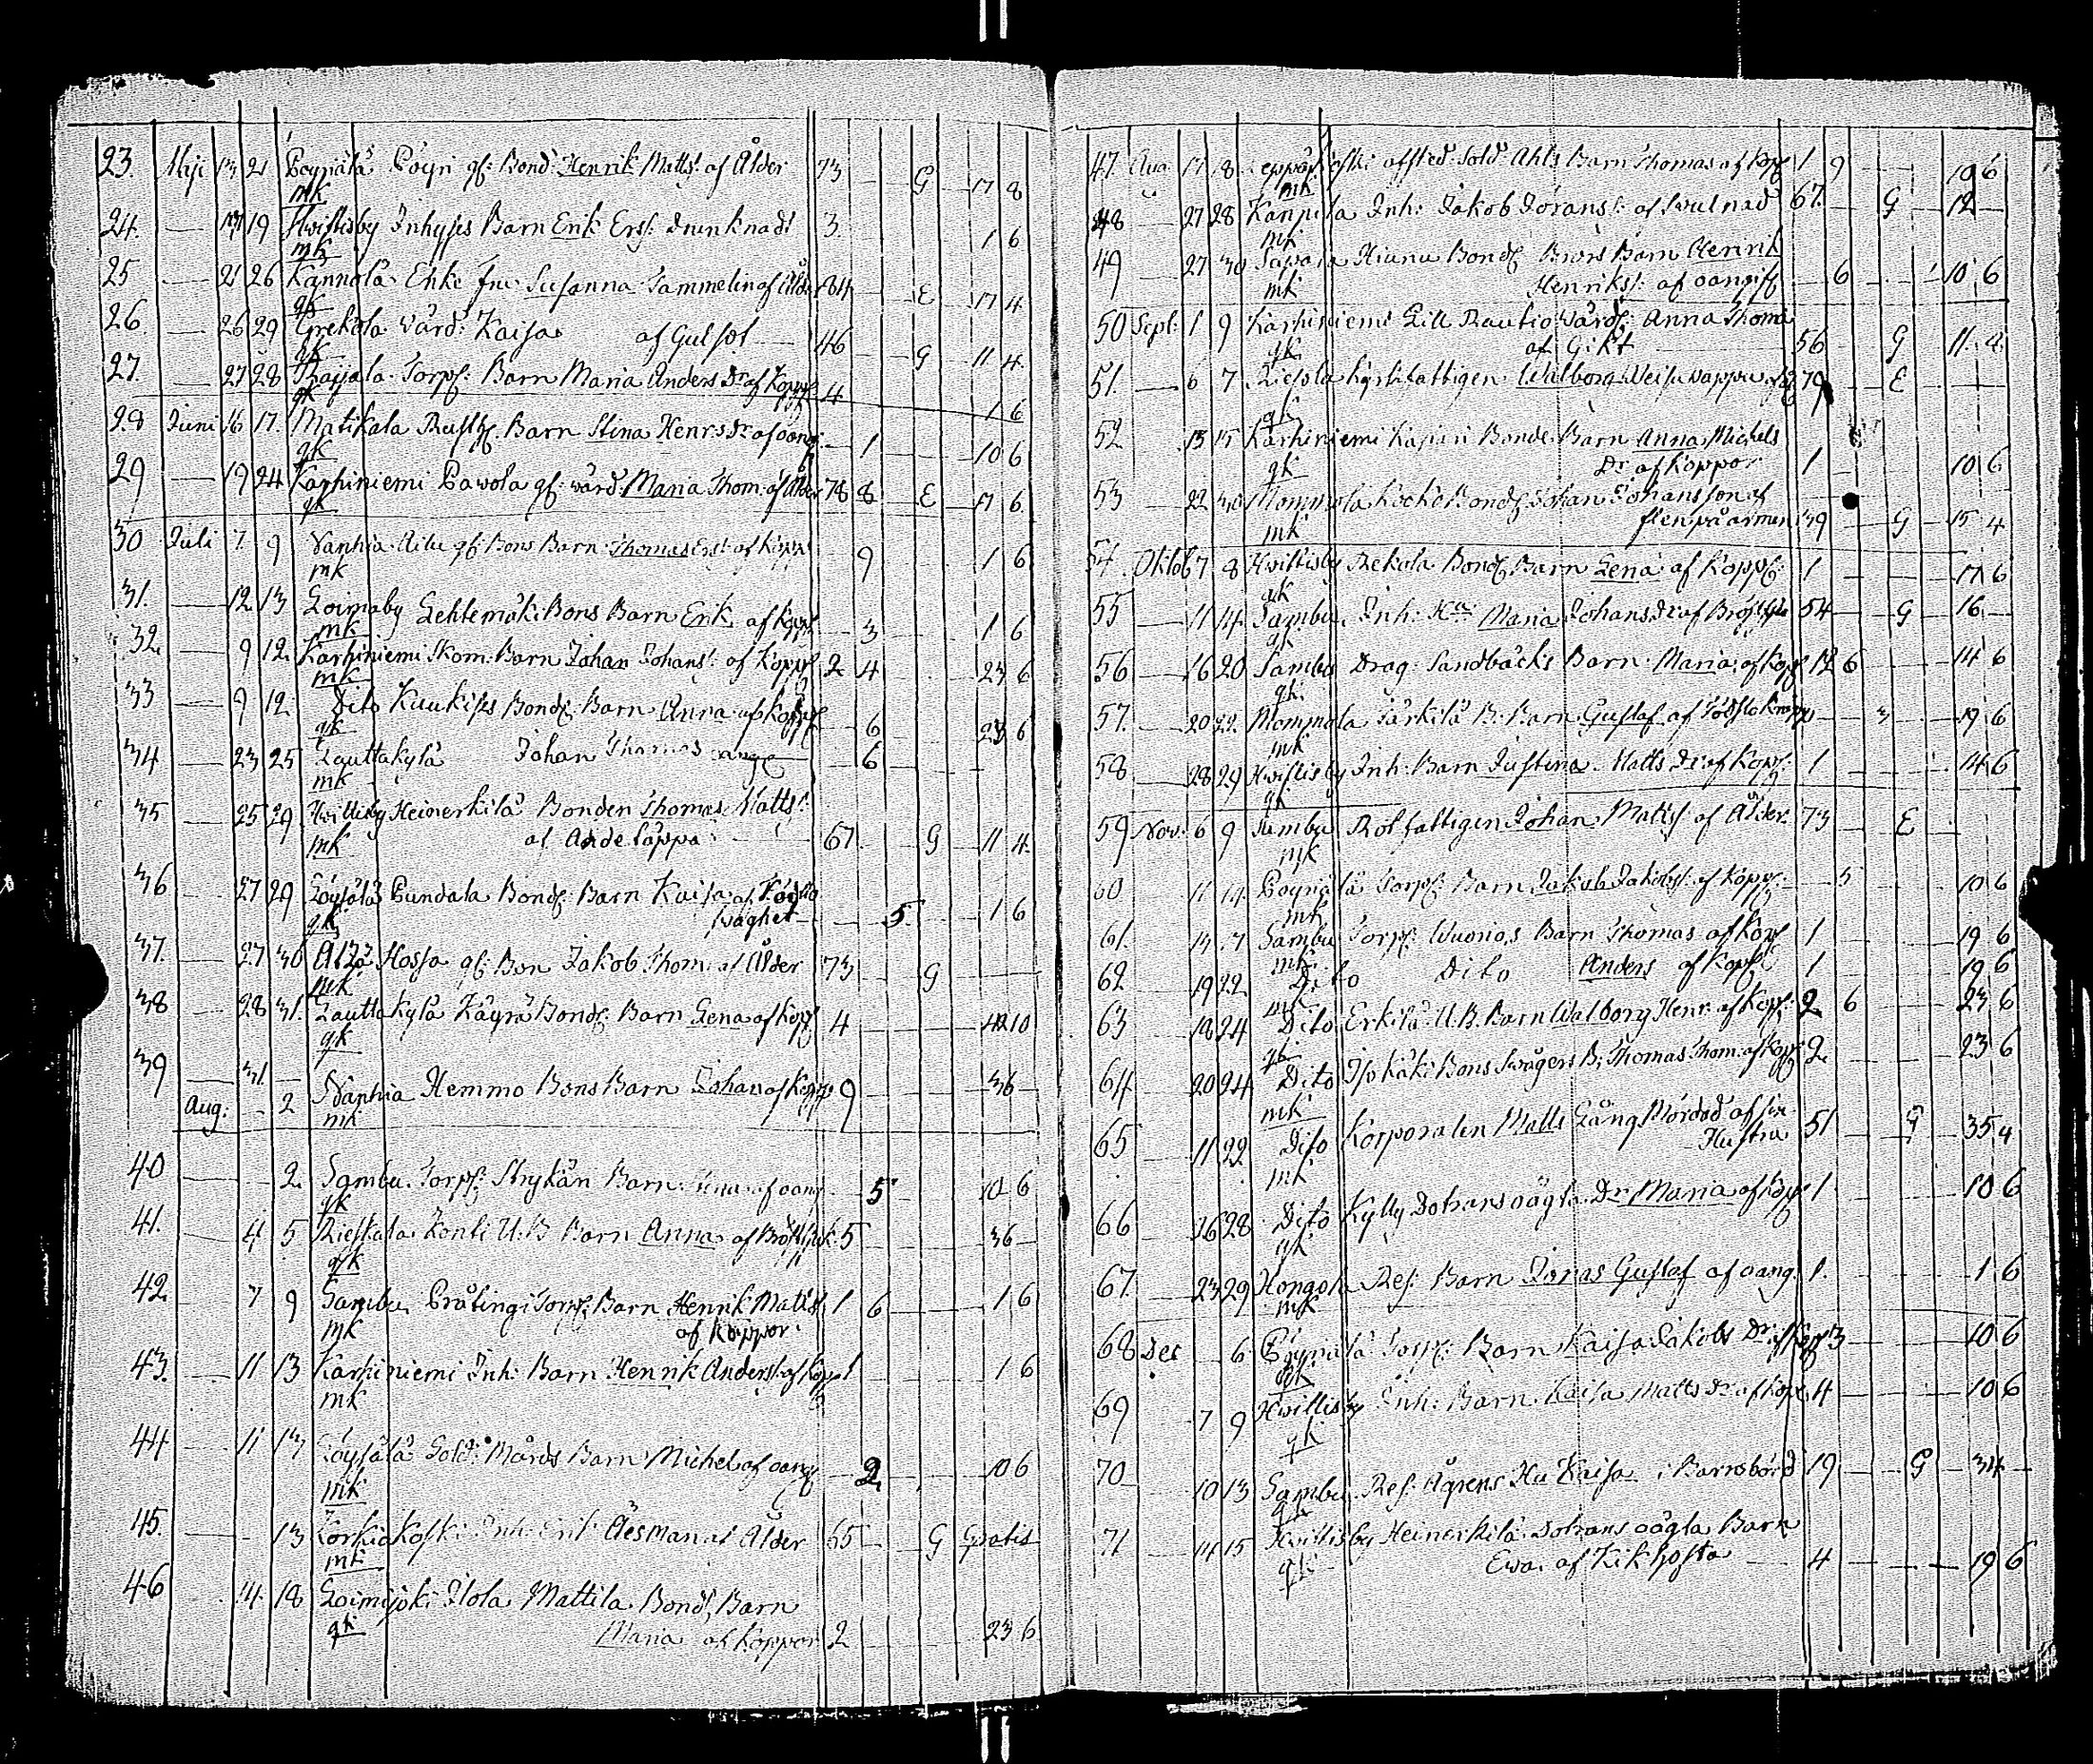 23. Maji 13 21 Pöyriälä Pöyri gl: Bond: Henrik Matts: af Ålder 73 — — G — 17 8
mk
24. — 17 19 Hvittisby Inhyses Barn Erik Ers: drunknadt 3. 1 6
mk
25 — 21 26 Kannola Enke fru Susanna Tammelin af Ålder 84 — E — 17 4
qk
26. — 26 29 Grekola Värd: Kaisa af Gulsot — 46 — G — 11 4.
qk
27. — 27 28 Raijala Torp: Barn Maria Anders Dr af Kopp 4 1 6
qk
28 Juni 16 17. Matikala Rusth: Barn Stina Henrs Dr af oang: — 1 10 6
qk
29 — 19 24 Karhiniemi Pawola gl: värd: Maria Thom: af Ålder 78 8 — E — 17 6
qk
30 Juli 7 9 Vanhia Bons Barn Thomas Ers: af Kopp 9 1 6
mk
31. — 12 13 Loimaby Lehtemäki Bons Barn Erik af Kopp — 3 1 6
mk
32. — 9 12. Karhiniemi Skom: Barn Johan Johans: af Kopp 2 4 23 6
mk
33 — 9 12 Dito Kuukises Bond: Barn Anna af Kopp — 6 23 6
qk
34 — 23 25 Lauttakylä Johan Thomas — 6
mk
35 — 25 29 Hvittisby Heinerkilä Bonden Thomas Matts:
mk af Andetäppa 67 G 11 4.
36 27 29 Löysälä Pundala Bond: Barn Kaisa af Födslo
qk svaghet — 5. 1 6
37. — 27 30 Hossa gl: Bon Jakob Thom: af Ålder 73 G
mk
38 — 28 31. Lauttakylä Käyrä Bond: Barn Lena af Kopp 4 10
qk
39 — 31. — Vanhia Hemmo Bons Barn Johan af Kopp 9 36 —
Aug: — 2 mk
40 — 2 Sambu Torp: Strykän Barn af oang. 5 10 6
qk
41. — 4 5 Rieskala Kenti U: B Barn Anna af Bröstsjuk: 5 36 —
qk
42. 7 9 Sambu Torp: Barn Henrik Matts: 1 6 1 6
mk af Koppor
43. — 11 13 Karhiniemi Inh: Barn Henrik Anders: af Kopp 1 1 6
mk
44 — 11 13 Löysälä Sold: Mårds Barn Michel af oang 2 10 6
mk
45. — 13 Korkiakoski Inh: Erik af Ålder 65 — G Gratis
mk
46 14 18 Loimijoki Ilola Mattila Bond: Barn
qk Maria af Koppor 2 23 6
47. Aug 17 18 afsked: Sold: Ahls Barn Thomas af Kop 1 9 — 10 6
mk
48 — 27 28 Kanpila Inh: Jakob Görans: af Svulnad 67. — G — 12 —
mk
49 — 27 30 Sawara Hiunu Bond: Brors Barn Henrik
mk Henriks: af oangif — 6 10 6
50 Sept: 1 9 Karhiniemi Lill Rautio Värd: Anna Thoma
qk af Gikt 56 G 11. 4.
51. — 6 7 Riesola Kyrkfattigen Walborg 79 — E —
qk
52. 13 15 Karhiniemi Kapari Bonde Barn Anna Michels
qk Dr af Koppor 1 10 6
53 22 30 Mommola Kocko Bond: Johan Johansson af
mk flen på armen 39 — G — 15 4
54. Oktob 7 8 Hvittisby Rekola Bond: Barn Lena af Kopp: 1 17 6
qk
55 11 14. Sambu Inh: Maria Johans Dr af Bröstsju 54 — G — 16 —
qk
56 — 16 20 Sambu Drag: Sandbäcks Barn Maria af Kop 12 6 14 6
qk.
57. — 20 22. Mommola Tärkilä B: Barn Gustaf af 3 19 6
mk
58 — 28 29 Hvittisby Inh: Barn Justina Matts Dr af Kopp: 1 14 6
qk
59 Nov: 6 9 Sambu Rotfattigen Johan Matts: af Ålder 73 — E —
mk
60 11 14. Pöyriälä Torp: Barn Jakob Jakobs: af Kopp: — 5 10 6
mk
61. 14 17 Sambu Torp: Wuorios Barn Thomas af Kop 1 19 6
mk
62 19 22 Dito Dito Anders af Kopp 1 19 6
mk
63 18 24 Dito Erkilä U. B. Barn Walborg Henr: af Kop: 2 6 23 6
qk
64 20 24 Dito Isokäki Bons Svågers B: Thomas Thom: af Kop 2 23 6
mk
65 — 11 22 Dito Korporalen Matts Lång Mördad af sin
mk Hustru 51 — G — 35 4
66 26 28 Dito Kylly Dotrans oägta Dr Maria af Kop 1 10 6
qk
67. 23 29 Hongola Res: Barn Jonas Gustaf af oang. 1. 1 6
mk
68 Dec — 6 Pöyriälä Torp: Barn Kaisa Jakobs Dr af Kop 3 10 6
qk
69 7 9 Hvittisby Inh: Barn Kaisa Matts Dr af Kop 4 10 6
qk
70 — 10 13 Sambu Res: Ågrens Hu Kaisa i Barnsbörd 19 — G — 34 —
qk
71 — 14 15 Hvittisby Heinerkilä Dotrans oägta Barn
qk Ewa af Kikhosta — 4 19 6